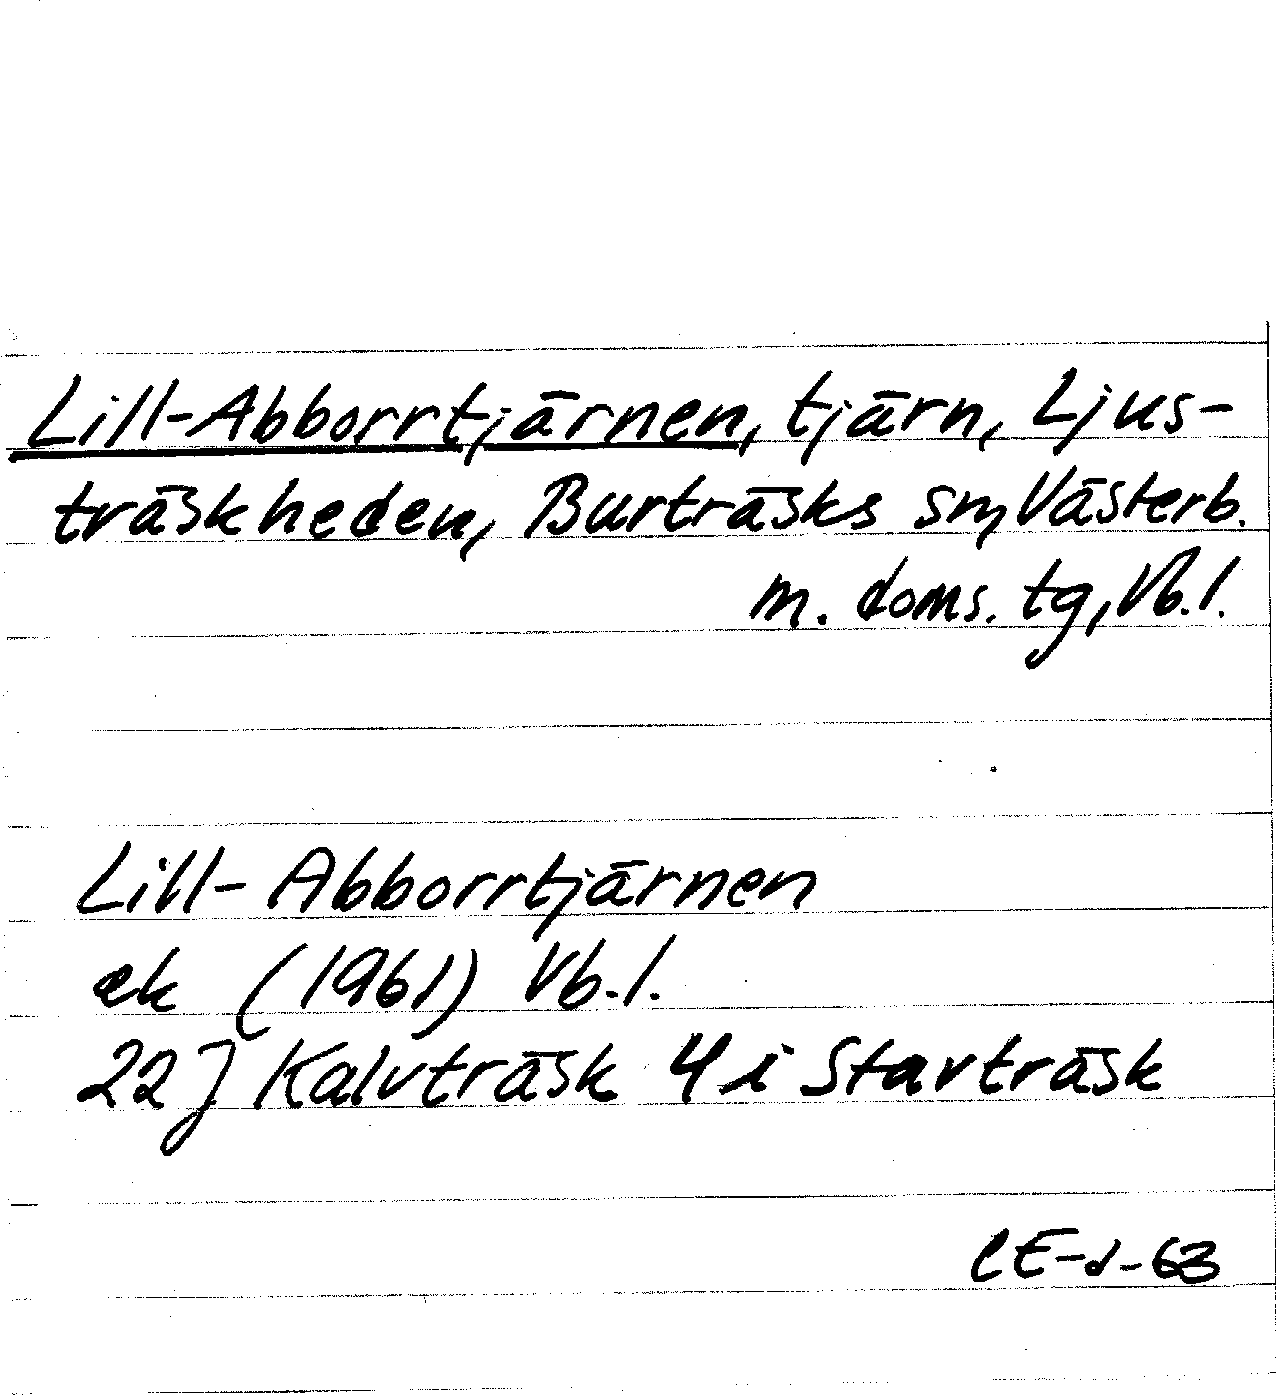 Lill-Abborrtjärnen, tjärn, Ljus-
träskheden, Burträsks sn, Västerb.
m. doms. tg, Vb. l.
Lill-Abborrtjärnen
ek (1961) Vb. l.
22 J Kalvträsk 4 i Stavträsk
CE-d-63